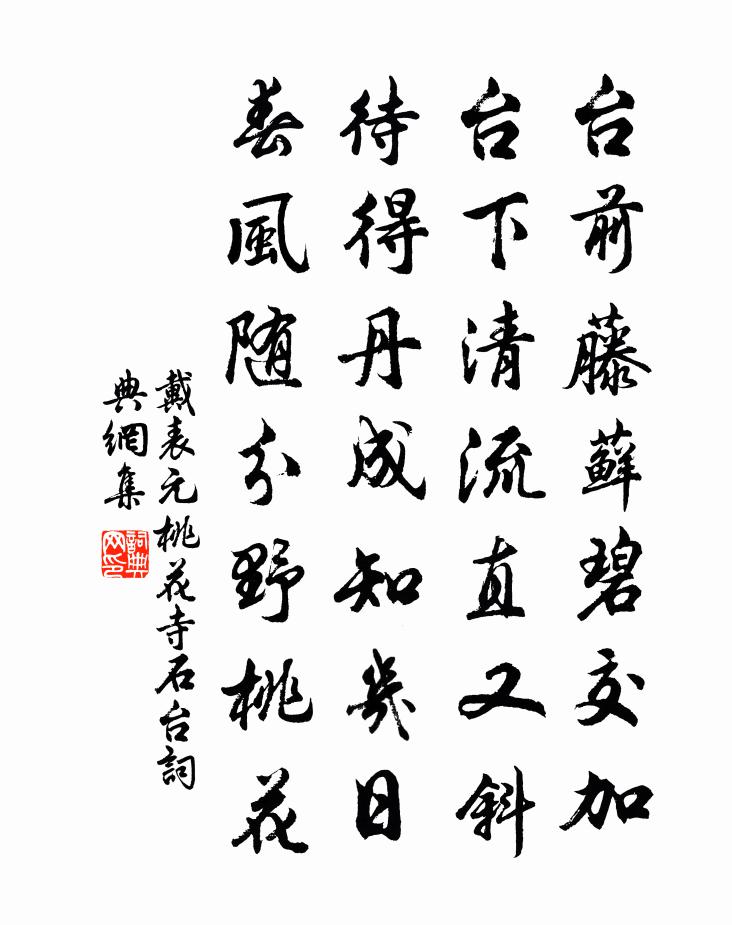 台前藤蘚碧交加
台下清流直又斜
待得丹成知幾日
春風随分野桃花
戴表元桃花寺石台詞
典網集
詞典
网印